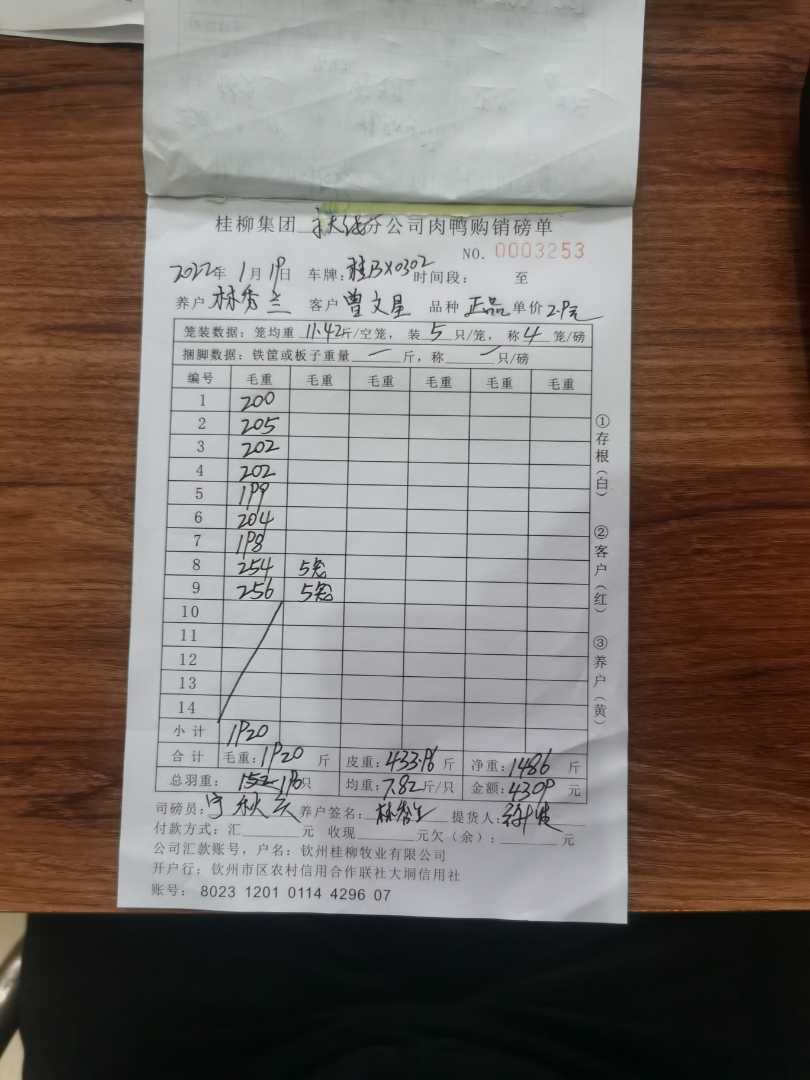 桂柳集团 分公司肉鸭购销磅单
NO. 0003253
2022年 1月19日 车牌:桂BX0302 时间段: 至
养户 林秀兰 客户 曾文星 品种 正品 单价 2.9元
笼装数据: 笼均重 11.42斤/空笼, 装 5 只/笼, 称 4 笼/磅
捆脚数据: 铁筐或板子重量 一 斤, 称 一 只/磅
编号 毛重 毛重 毛重 毛重 毛重 毛重
1 200
2 205
3 202
4 202
5 199
6 204
7 198
8 254 5笼
9 256 5笼
10
11
12
13
14
小计 1920
合计 毛重:1920 斤 皮重:433.96 斤 净重:1486 斤
总羽重: 190只 均重:7.82斤/只 金额:4309 元
司磅员: 养户签名: 提货人:
付款方式:汇 元 收现 元欠(余): 元
公司汇款账号, 户名: 钦州桂柳牧业有限公司
开户行: 钦州市区农村信用合作联社大垌信用社
账号: 8023 1201 0114 4296 07
①存根(白)
②客户(红)
③养户(黄)